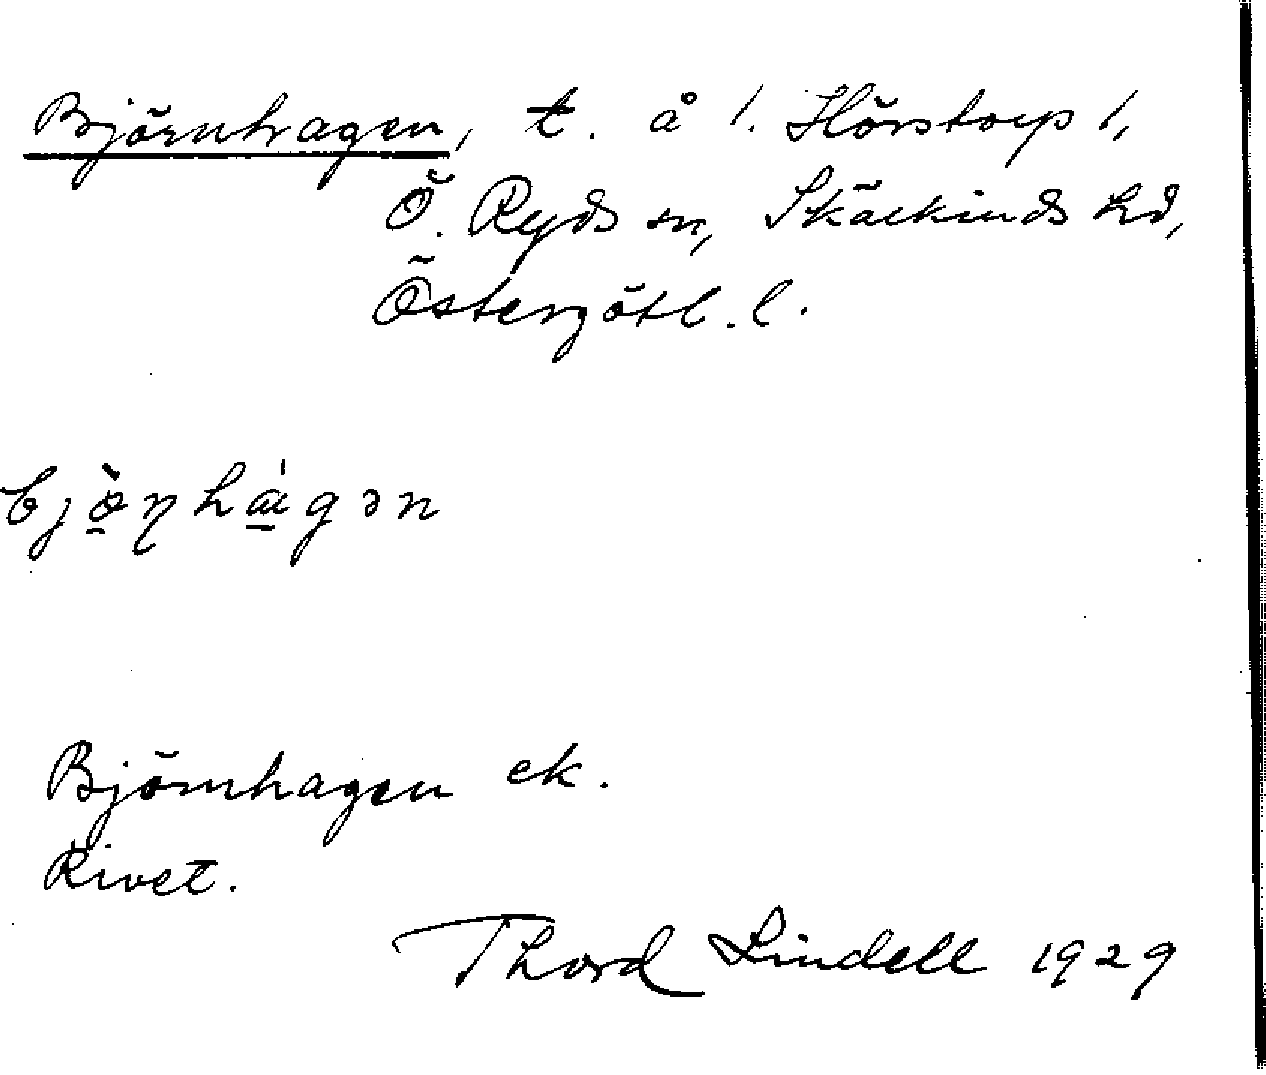 Björnhagen, t. å l. Hörstorp 1,
Ö. Ryds sn, Skärkinds hd,
Östergötl. l.
bjö̀ṇhágən
Björnhagen ek.
Rivet.
Thord Lindell 1929